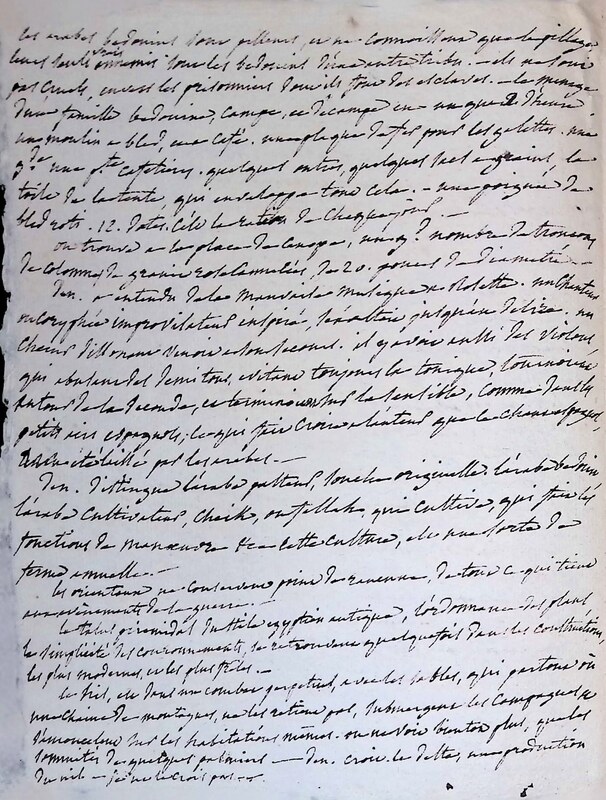 les arabes bedouins sont pilleurs, et ne connaissent que le pillage
leurs seuls vrais ennemis sont les bedouins d'une autre tribu. — ils ne sont
pas cruels, envers les prisonniers dont ils font des esclaves. — le menage
d'une famille bedouine, campe, et décampe en un quart d'heure
un moulin a bled, un a café. une plaque de fer pour les galettes. une
gde une pte cafetiere. quelques outres, quelques sacs a grains, la
toile de la tente, qui enveloppe tout cela. — une poignée de
bled roti. 12. dates. c'est la ration de chaque jour. —
on trouve a la place de Canope, un gd nombre de tronçons
de colonnes de granit rose cannelées, de 20. pouces de diametre. —
Den. a entendu de la mauvaise musique a Rosette. un chanteur
ou coryphée improvisateur inspiré, jusqu'au delire. un
chœur d'ilionans venoit a son secours. il y avoit aussi des violons
qui abusent des demi tons, evitant toujours la tonique, tournant
autour de la seconde, et terminant sur la sensible, comme dans les
petits airs espagnols; ce qui fait croire a l'auteur que le chant espagnol
a été laissé par les arabes. —
Den. distingue l'arabe pasteur, souche originelle. l'arabe bedouin
l'arabe cultivateur, cheik, ou fellah, qui cultive, qui fait les
fonctions de manœuvre de cette culture, est une sorte de
ferme annuelle. —
les orientaux ne conservent point de rancune, de tout ce qui tient
aux evenements de la guerre. —
le talus piramidal du stile egyptien antique, l'ordonnance des plans
la simplicité des couronnements, se retrouvent quelquefois dans les constructions
les plus modernes, et les plus freles. —
le Nil, est dans un combat perpetuel, avec les sables, qui partout où
une chaine de montagnes, ne les retient pas, submergent les campagnes et
s'amoncelent sur les habitations mêmes. on ne voit bientot plus, que les
sommités de quelques palmiers — Den. croit le delta, une production
du nil — je ne le crois pas —